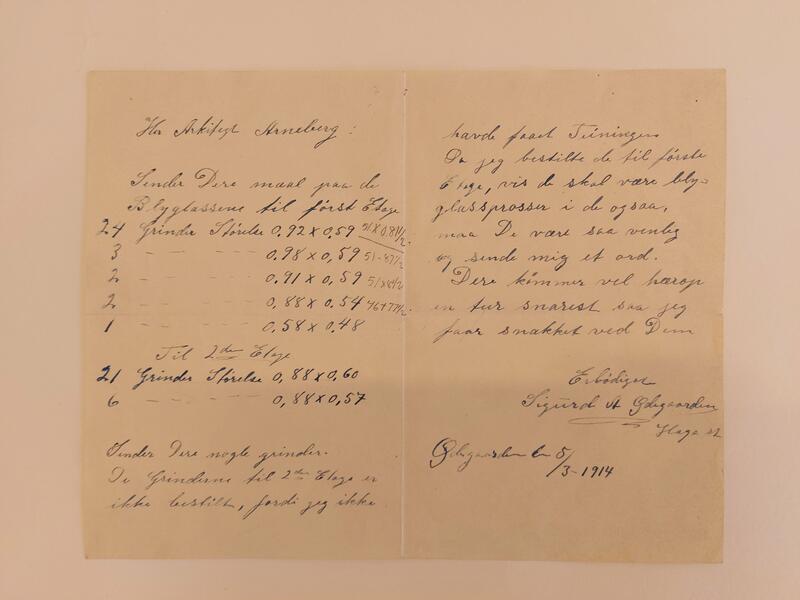 Her Arkitegt Arneberg:
Sender Dere maal paa de
Blyglassene til først Etage
24 Grinder Störelse 0,92 x 0,59
3 — — — 0,98 x 0,59
2 — — — 0,91 x 0,59
2 — — — 0,88 x 0,54
1 — — — 0,58 x 0,48
Til 2den Etage
21 Grinder Störelse 0,88 x 0,60
6 — — — 0,88 x 0,57
Sender Dere nogle grinder.
De Grinderne til 2den Etage er
ikke bestilt, fordi jeg ikke
havde faaet Teiningen
Da jeg bestilte de til förste
Etage, vis de skal være bly-
glassprosser i de ogsaa,
maa De være saa venlig
og sende mig et ord.
Dere kommer vel herop
en tur snarest saa jeg
faar snakket ved Dem
Erbødigst
Sigurd A Ødegaarden
Haga st
Ødegaarden den 5/3-1914